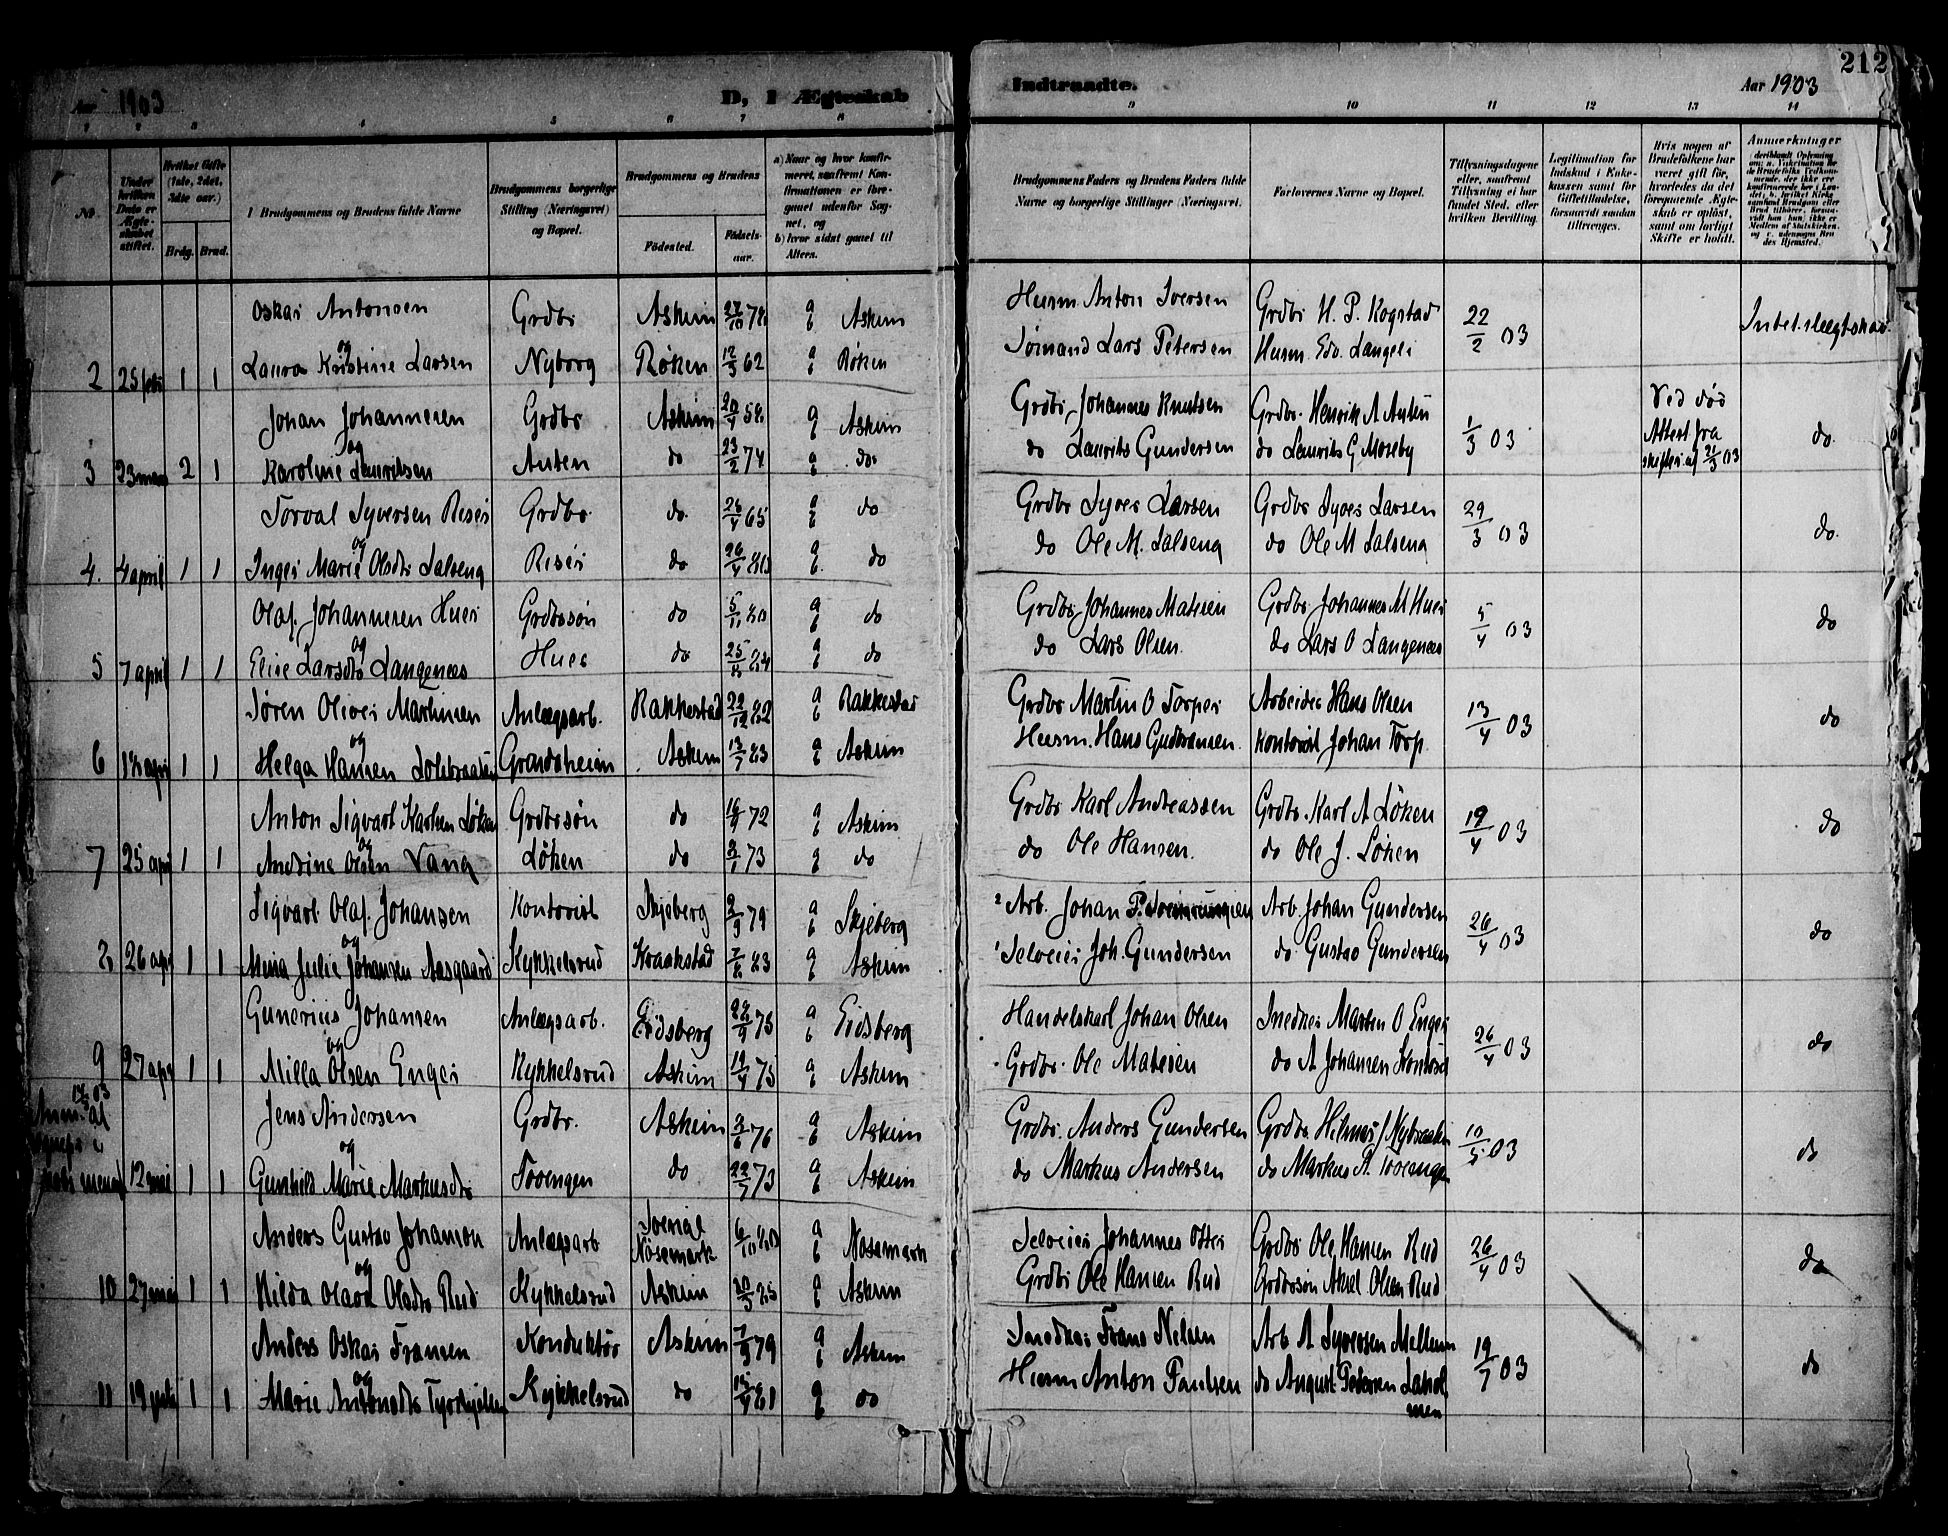 Aar 1903
D, I Ægteskab
1 2 3 4 5 6 7 8
No.
Under hvilken Dato er Ægteskabet stiftet.
Hvilket Gifte (1ste, 2det, 3die osv.)
Brdg. Brud.
Brudgommens og Brudens fulde Navne
Brudgommens borgerlige Stilling (Næringsvei) og Bopæl.
Brudgommens og Brudens
Födested. Födsels-aar.
a) Naar og hvor konfirmeret, saafremt Konfirmationen er foregaaet udenfor Sognet, og
b) hvor sidst gaaet til Alters.
Oskar Antonsen Grdbr Askim 78 a b Askim
og
2 25 feb 1 1 Laura Kristine Larsen Nyborg Røken 12/3 62 a b Røken
Johan Johannesen Grdbr Askim 20/4 58 a b Askim
og
3 23 mars 2 1 Karoline Lauritsen Anten do 23/2 74 a b do
Torval Syversen Riser Grdbr do 26/4 65 a b do
og
4. 4 april 1 1 Inger Marie Olsdtr Salseng Riser do 26/4 80 a b do
Olaf Johannesen Huer Grdbrsøn do 80 a b do
og
5 7 april 1 1 Elise Larsdtr Langenæs Huer do a b do
Søren Oliver Martinsen Anlægsarb. Rakkestad 22/12 82 a b Rakkestad
og
6 18 apr 1 1 Helga Hansen Grandsheim Askim 13/7 83 a b Askim
Anton Sigvart Karlsen Løken Grdbrsøn do 72 a b Askim
og
7 25 apr 1 1 Andrine Olsen Vang Løken do 73 a b do
Sigvart Olaf Johansen Kontorist Skjeberg 79 a b Skjeberg
og
8 26 apr 1 1 Mina Julie Johansen Aasgaard Kykkelsrud Kraakstad 83 a b Askim
Gunerius Johansen Anlægsarb. Eidsberg 75 a b Eidsberg
og
9 27 apr 1 1 Milla Olsen Enger Kykkelsrud Askim 19/4 75 a b Askim
Jens Andersen Grdbr. Askim 3/6 76 a b Askim
og
12 mai 1 1 Gunhild Marie Markusdtr Tovengen do 22/7 73 a b Askim
Anders Gustav Johanson Anlægsarb Sverige Nösemark 6/10 80 a b Nösemark
og
10 27 mai 1 1 Hilda Olava Olsdtr Rud Kykkelsrud Askim a b Askim
Anders Oskar Fransen Konduktør Askim 7/9 79 a b Askim
og
11 19 juli 1 1 Marie Antonsdtr Kykkelsrud do 81 a b do
Indtraadte.
Aar 1903
212
9 10 11 12 13 14
Brudgommens Faders og Brudens Faders fulde Navne og borgerlige Stillinger (Næringsvei.
Forlovernes Navne og Bopæl.
Tillysningsdagene eller, saafremt Tillysning ei har fundet Sted, eller hvilken Bevilling.
Legitimation for Indskud i Enkekassen samt for Giftetilladelse, forsaavidt saadan tiltrænges.
Hvis nogen af Brudefolkene har været gift för, hvorledes da det foregaaende Ægteskab er oplöst, samt om lovligt Skifte er holdt.
Anmærkninger
Husm Anton Iversen Grdbr H. P. Kogstad 22/2 03 Intet slægtskab
Sømand Lars Petersen Husm. Edv. Langeli
Grdbr Johannes Knutsen Grdbr. Henrik A Anten 1/3 03 Ved død do.
do Laurits Gundersen do Laurits G Moseby Attest fra skifter af 21/3 03
Grdbr Syver Larsen Grdbr Syver Larsen 29/3 03 do.
do Ole M. Salseng do Ole M Salseng
Grdbr Johannes Matisen Grdbr Johannes M Huer 5/4 03 do
do Lars Olsen. do Lars O Langenæs
Grdbr Martin O Torper Arbeider Hans Olsen 13/4 03 do
Husm. Hans Gudbransen Kontorist Johan Torp
Grdbr Karl Andreassen Grdbr. Karl A Løken 19/4 03 do
do Ole Hansen. do Ole J. Løken
Arb. Johan P. Arb. Johan Gundersen 26/4 03 do
Selveier Joh. Gundersen do Gustav Gundersen
Handelskarl Johan Olsen Snedker Martin O Enger 26/4 03 do
Grdbr. Ole Matisen do A Johansen Kontorist
Grdbr. Anders Gundersen Grdbr. Hilmar 10/5 03 do
do Markus Andersen do Markus A. Tovengen
Selveier Johannes Otter Grdbr Ole Hansen Rud 26/4 03 do
Grdbr Ole Hansen Rud Grdbrsøn Aksel Olsen Rud
Snedker Frans Nelsen Arb A Syversen 19/7 03 do
Husm Anton Paulsen do August Petersen